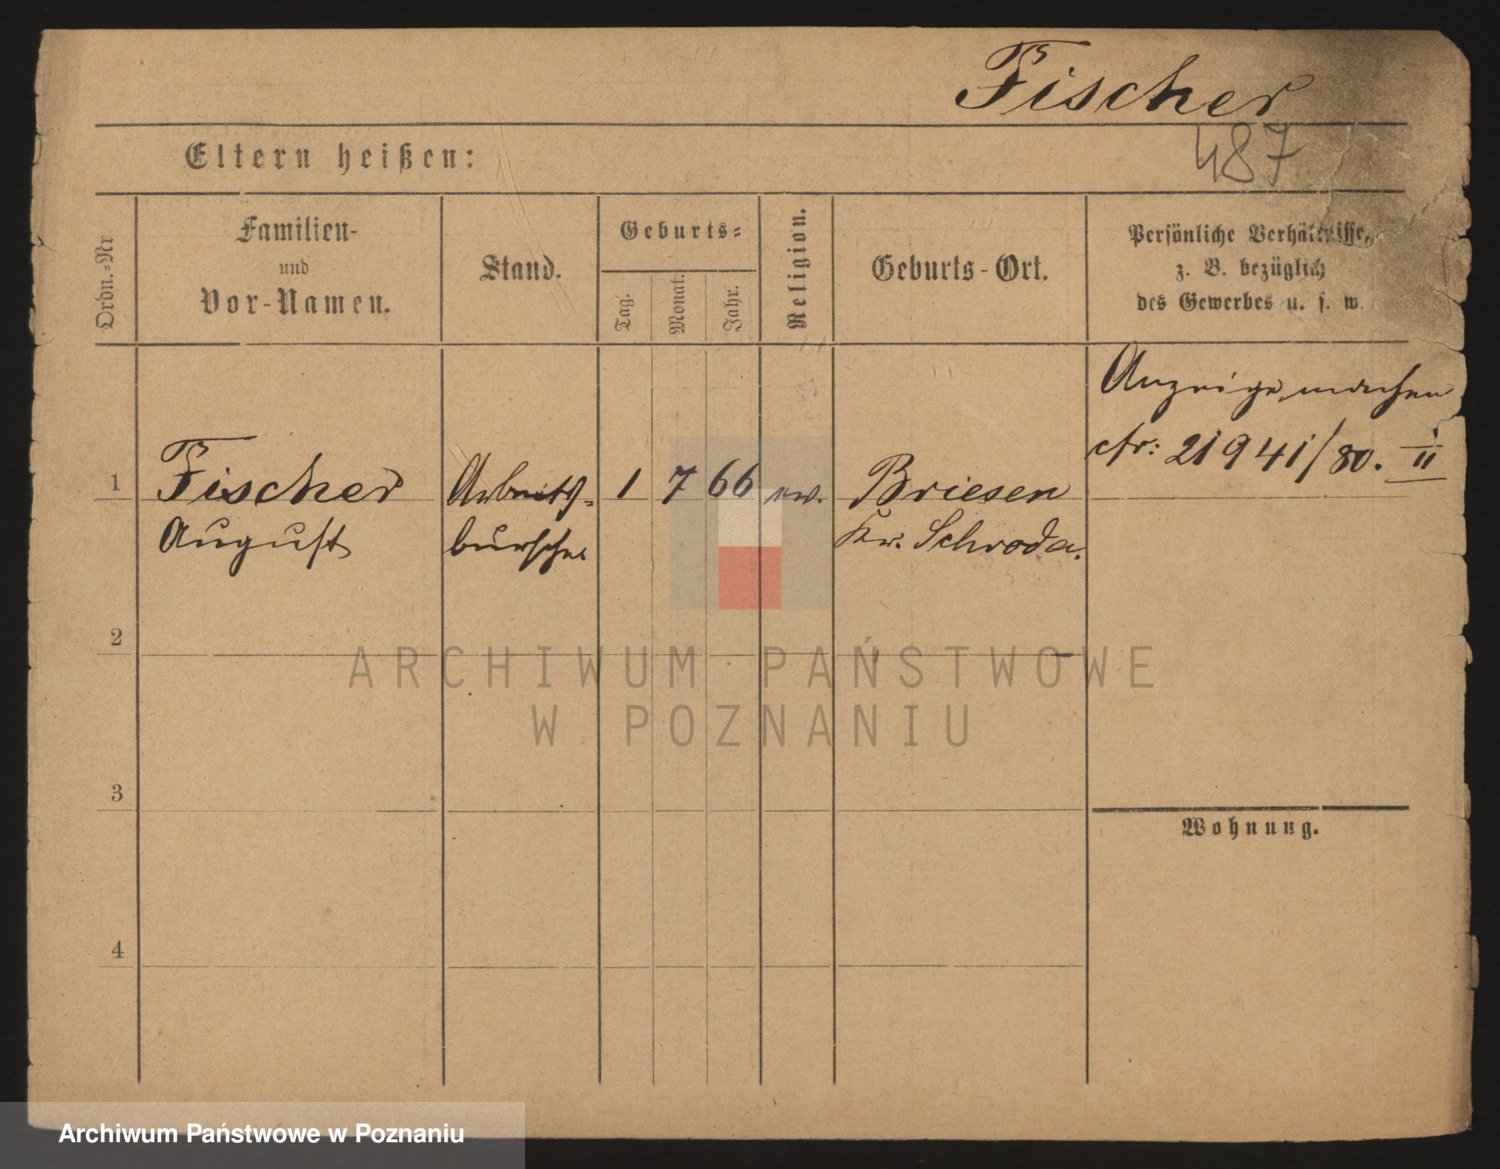 Fischer
487
Eltern heißen:
Ordn.-Nr
Familien-
und
Vor-Namen.
Stand.
Geburts-
Tag.
Monat.
Jahr.
Religion.
Geburts-Ort.
Persönliche Verhältnisse,
z. B. bezüglich
des Gewerbes u. s. w.
Anzeige machen
cfr: 21941/80. II
1 Fischer Arbeits- 1 7 66 ev. Briesen
August bursche. Kr. Schroda.
2
3
4
Wohnung.
ARCHIWUM PAŃSTWOWE
W POZNANIU
Archiwum Państwowe w Poznaniu